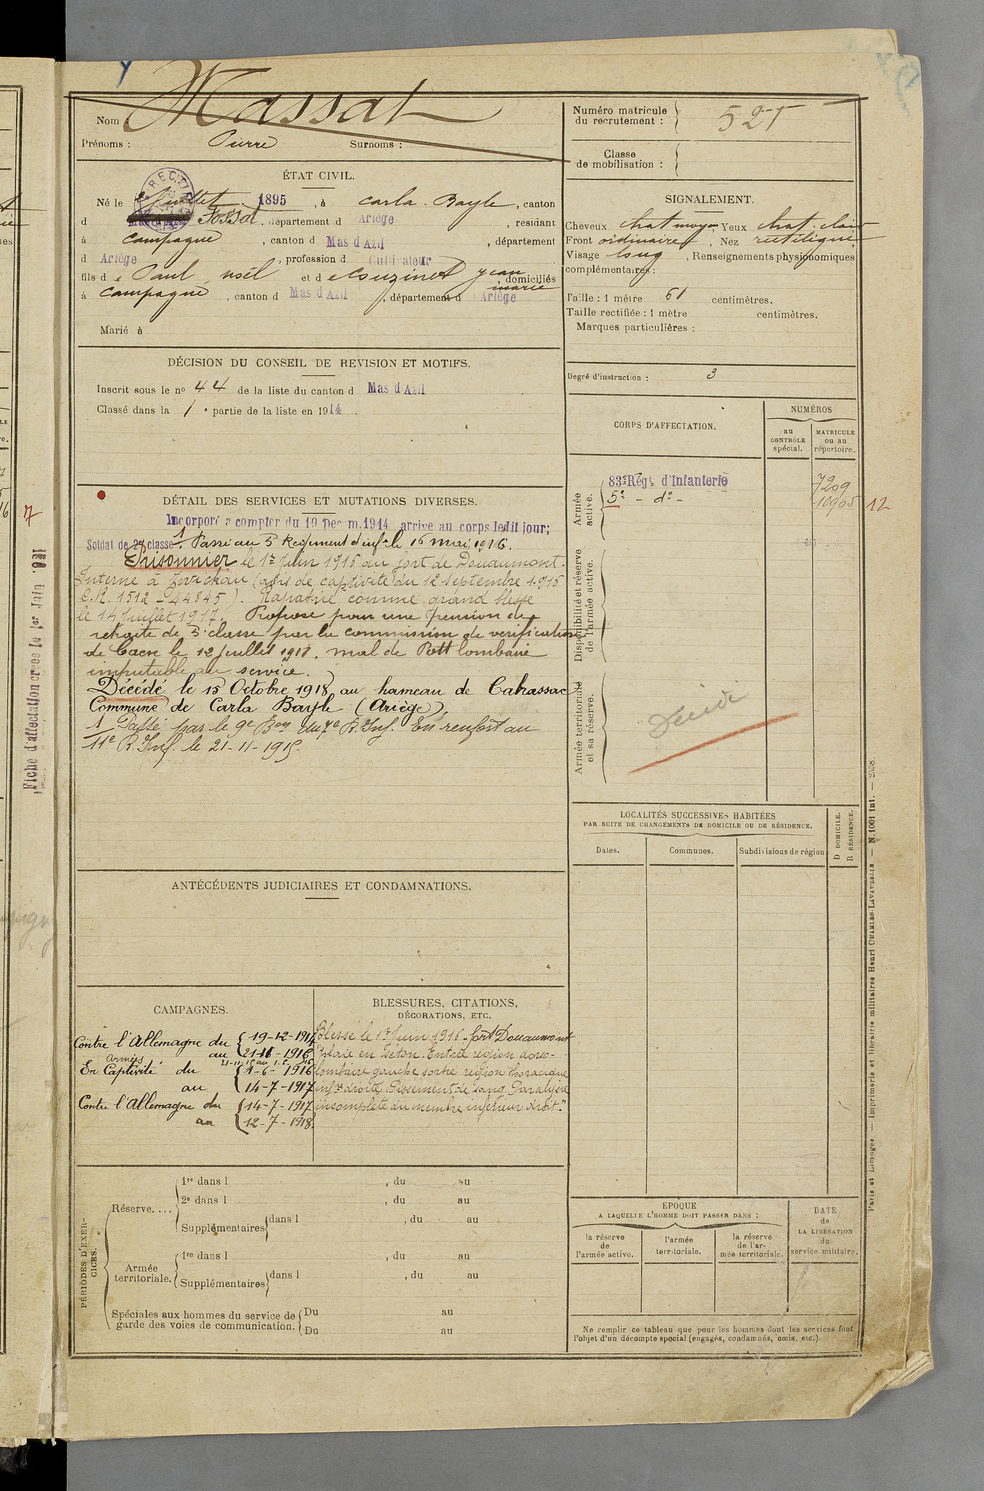 Massat
Nom
Prénoms : Pierre Surnoms :
Numéro matricule
du recrutement : 527
Classe
de mobilisation :
ÉTAT CIVIL.
Né le juillet 1895, à Carla-Bayle, canton
d Fossat, département d Ariège, résidant
à Campagne, canton d Mas d'Azil, département
d Ariège, profession d Cultivateur
fils de Paul noël et de Couzinet Jean
marie, domiciliés
à Campagne, canton d Mas d'Azil, département d Ariège
Marié à
SIGNALEMENT.
Cheveux chat moyen Yeux chat. clair
Front ordinaire, Nez rectiligne
Visage long, Renseignements physionomiques
complémentaires :
Taille : 1 mètre 61 centimètres.
Taille rectifiée : 1 mètre centimètres.
Marques particulières :
Degré d'instruction : 3
DÉCISION DU CONSEIL DE REVISION ET MOTIFS.
Inscrit sous le nº 44 de la liste du canton d Mas d'Azil
Classé dans la 1e partie de la liste en 1914.
DÉTAIL DES SERVICES ET MUTATIONS DIVERSES.
Incorporé à compter du 19 Décem. 1914 arrivé au corps ledit jour;
Soldat de 2e classe. 1 Passé au 5e Régiment d'inf. le 16 mai 1916.
Prisonnier le 1er Juin 1916 au fort de Douaumont.
Interné à Zwickau (avis de captivité du 12 Septembre 1916
C.R. 1512 - 44845). Rapatrié comme grand blessé
le 14 Juillet 1917. Proposé pour une pension de
retraite de 5e classe par la commission de vérification
de Caen le 12 juillet 1918. mal de Pott lombaire
imputable au service.
Décédé le 15 Octobre 1918 au hameau de Cabassac
Commune de Carla Bayle (Ariège)
1 Passé par le 9e Bon du 7e R. Inf. En renfort au
11e R. Inf. le 21-11-1915
CORPS D'AFFECTATION.
NUMÉROS
au
CONTRÔLE
spécial.
MATRICULE
ou au
répertoire.
Armée
active.
83e Rég. d'Infanterie 7209
5e - do - 10905 12
Disponibilité et réserve
de l'armée active.
Armée territoriale
et sa réserve.
Décédé
LOCALITÉS SUCCESSIVES HABITÉES
PAR SUITE DE CHANGEMENTS DE DOMICILE OU DE RÉSIDENCE.
Dates.
Communes.
Subdivisions de région
D DOMICILE.
R RÉSIDENCE.
ANTÉCÉDENTS JUDICIAIRES ET CONDAMNATIONS.
CAMPAGNES.
Contre l'Allemagne du 19-12-1914
au 1916
Armées
En Captivité du 1-6-1916
au 14-7-1917
Contre l'Allemagne du 14-7-1917
au 12-7-1918
BLESSURES, CITATIONS,
DÉCORATIONS, ETC.
Blessé le 1er Juin 1916 - fort Douaumont
"plaie en séton. Entrée région dorso-
lombaire gauche sortie région thoracique
infre droite. Paralysie
incomplète du membre inférieur droit."
PÉRIODES D'EXERCICES.
Réserve....
1re dans l , du au
2e dans l , du au
Supplémentaires dans l , du au
Armée
territoriale.
1re dans l , du au
Supplémentaires dans l , du au
Spéciales aux hommes du service de
garde des voies de communication.
Du au
Du au
EPOQUE
A LAQUELLE L'HOMME DOIT PASSER DANS :
la réserve
de
l'armée active.
l'armée
territoriale.
la réserve
de l'ar-
mée territoriale.
DATE
de
LA LIBÉRATION
du
service militaire.
Ne remplir ce tableau que pour les hommes dont les services font
l'objet d'un décompte spécial (engagés, condamnés, omis, etc.).
Paris et Limoges. — Imprimerie et librairie militaires Henri CHARLES-LAVAUZELLE — N. 1001 int. — 2558.